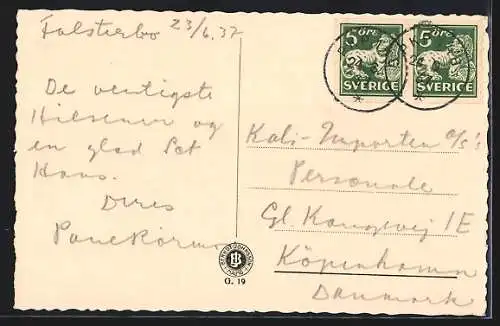 Falsterbo 23/6. 37
De venligste
Hilsener og
en glad Sct
Hans.
Deres
5 ÖRE
SVERIGE
5 ÖRE
SVERIGE
Importen A/S's
Personale
Gl. Kongevej 1E
Köpenhamn
Danmark
G. 19